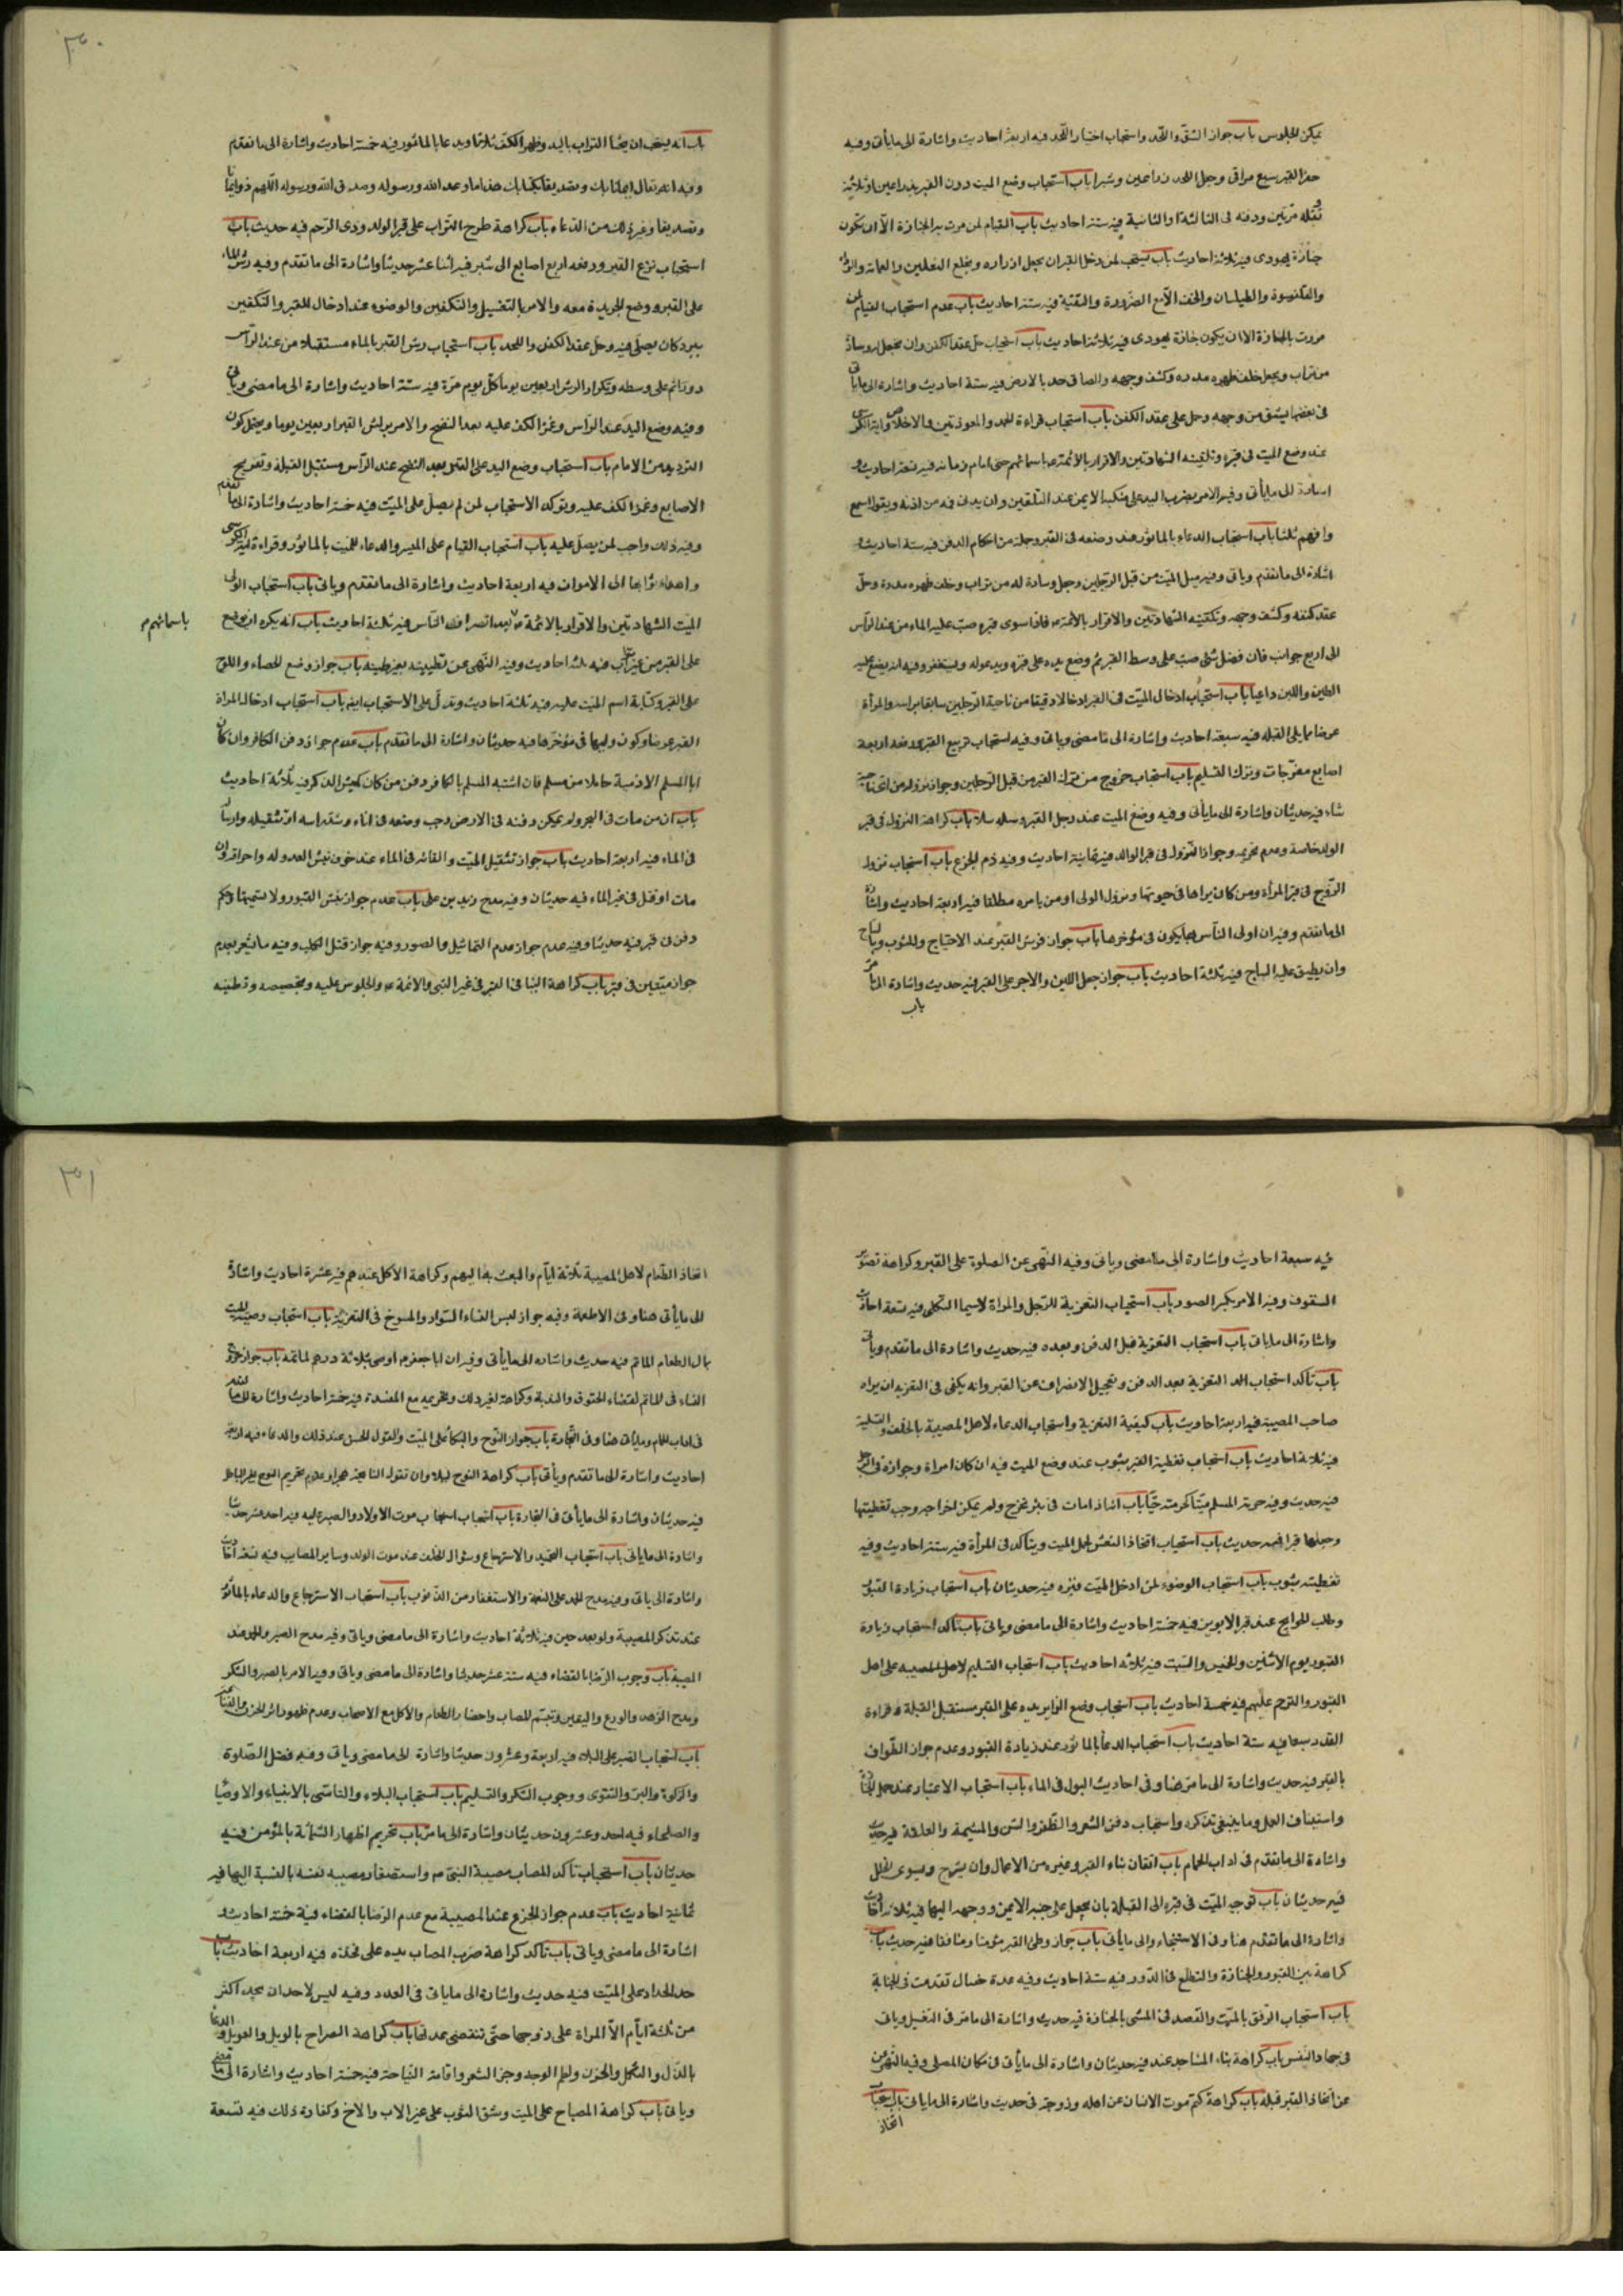 يمكن الجلوس باب جواز الشقّ واللّحد واستحباب اختيار اللّحد فيه اربعة احاديث واشارة الى ما يأتى وفيه
حفر القبر سبع مراقى وجعل اللحد ذراعين وشبرا باب استحباب وضع الميت دون القبر بذراعين او ثلثة
نقله مرّتين ودفنه فى الثالثة او الثانية فيه ستة احاديث باب القيام لمن مرت به الجنازة الّا ان تكون
جنازة يهودى فيه ثلاثة احاديث باب يستحب لمن دخل القبر ان يحل ازراره ويخلع النعلين والعمامة والرداء
والقلنسوة والطيلسان والخف الّا مع الضرورة والتقيّة فيه ستة احاديث باب عدم استحباب القيام لمن
مررت به الجنازة الا ان يكون جنازة يهودى فيه ثلاثة احاديث باب استحباب حلّ عقد الكفن وان يجعل له وسادة
من تراب ويجعل خلف ظهره مدره وكشف وجهه والصاق خده بالارض فيه ستة احاديث واشارة الى ما ياتى
فى بعضها يشق من وجهه وحمل على عقد الكفن باب استحباب قراءة الحمد والمعوذتين والاخلاص واية الكرسى
عند وضع الميت فى قبره وتلقينه الشهادتين والاقرار بالائمّة ع باسمائهم حتى امام زمانه فيه تسعة احاديث و
اشارة الى ما يأتى وفيه الامر بضرب اليد على منكبه الايمن عند التلقين وان يدنى فمه من اذنه ويقول اسمع
وافهم ثلثا باب استحباب الدعاء بالمأثور عند وضعه فى القبر وجملة من احكام الدفن فيه ستة احاديث و
اشارة الى ما تقدم وياتى وفيه سل الميّت من قبل الرّجلين وجعل وسادة له من تراب وخلف ظهره مدرة وحلّ
عقد كفنه وكشف وجهه وتلقينه الشهادتين والاقرار بالائمّة ع فاذا سوى قبره صبّ عليه الماء من عند الرأس
الى اربع جوانب فان فضل شئ صبّ على وسط القبر ثم وضع يده على قبره ويدعو له ويستغفر وفيه انه يضع عليه
الطين واللبن داعيا باب استحباب ادخال الميّت فى القبر ادخالا رقيقا من ناحية الرّجلين سابقا براسه والمرأة
عرضا مما يلى القبلة فيه سبعة احاديث واشارة الى ما مضى وياتى وفيه استحباب تربيع القبر ورفعه اربعة
اصابع مفرّجات وترك التسليم باب استحباب خروج من نزل القبر من قبل الرّجلين وجواز نزوله من اى ناحية
شاء فيه حديثان واشارة الى ما يأتى وفيه وضع الميت عند رجل القبر وسله سلا باب كراهة النزول فى قبر
الولد خاصة وعدم تحريمه وجواز النّزول فى قبر الوالد فيه ثمانية احاديث وفيه ذم الجزع باب استحباب نزول
الزّوج فى قبر المرأة ومن كان يراها فى حيوتها ونزول الولى او من يامره مطلقا فيه اربعة احاديث واشارة
الى ما تقدم وفيه ان اولى النّاس بها يكون فى مؤخرها باب جواز فرش القبر عند الاحتياج وبالثوب وبالساج
وان يطبق عليه الساج فيه ثلثة احاديث باب جواز جعل اللبن والاجر على القبر فيه حديث واشارة الى ما مرّ
باب
٣٠
باب انه يستحب ان يحثا التراب باليد وظهر الكفّ ثلاثا ويدعا بالمأثور فيه خمسة احاديث واشارة الى ما تقدم
وفيه انه يقال ايمانا بك وتصديقا بكتابك هذا ما وعد الله ورسوله وصدق الله ورسوله اللّهم زد ايمانا
وتصديقا وغير ذلك من الدّعاء باب كراهة طرح التراب على قبر الولد وذى الرّحم فيه حديث باب
استحباب تربيع القبر ورفعه اربع اصابع الى شبر فيه اثنا عشر حديثا واشارة الى ما تقدم وفيه رش الماء
على القبر ووضع الجريدة معه والامر بالتغسيل والتكفين والوضوء عند ادخال القبر والتكفين
ببرد كان يصلّى فيه وحل عقد الكفن واللحد باب استحباب رش القبر بالماء مستقبلا من عند الرّأس
دورا ثم على وسطه وتكرار الرش اربعين يوما كلّ يوم مرّة فيه ستة احاديث واشارة الى ما مضى وياتى
وفيه وضع اليد عند الرّاس وغمز الكف عليه بعد النضح والامر برش القبر اربعين يوما ويحتمل كون
الترديد من الامام باب استحباب وضع اليد على القبر بعد النضح عند الرّأس مستقبل القبلة وتفريج
الاصابع وغمز الكف عليه وتوكد الاستحباب لمن لم يصلّ على الميّت فيه خمسة احاديث واشارة الى ما تقدم
وفيه ذلك واجب لمن يصل عليه باب استحباب القيام على القبر والدعاء للميّت بالمأثور وقراءة اية الكرسى
واهداء ثوابها الى الاموات فيه اربعة احاديث واشارة الى ما تقدم وياتى باب استحباب الولى
الميّت الشهادتين والاقرار بالائمّة ع بعد انصراف النّاس فيه ثلثة احاديث باب انه يكره ان يوضع
باسمائهم م
على القبر من غير ترابه فيه ثلثة احاديث وفيه النّهى عن تطيينه بغير طينه باب جواز وضع الحصاء واللوح
على القبر وكتابة اسم الميّت عليه فيه ثلثة احاديث وتدلّ على الاستحباب ايضا باب استحباب ادخال المراة
القبر عرضا وكون وليها فى مؤخرها فيه حديثان واشارة الى ما تقدم باب عدم جواز دفن الكافر وان كان
ابا المسلم الا ذمية حاملا من مسلم فان اشتبه المسلم بالكافر دفن من كان كميش الذكر فيه ثلاثة احاديث
باب ان من مات فى البحر ولم يمكن دفنه فى الارض وجب وضعه فى اناء وشد راسه او تثقيله وارساله
فى الماء فيه اربعة احاديث باب جواز تثقيل الميّت والقائه فى الماء عند خوف نبش العدو له واحراقه وان
مات او قتل فى غير الماء فيه حديثان وفيه مدح زيد بن على باب عدم جواز نبش القبور ولا تسنيمها وحكم
دفن فى قبر فيه حديثا وفيه عدم جواز هدم التماثيل والصور وفيه جواز قتل الكلب وفيه ما يشعر بعدم
جواز ميتين فى قبر باب كراهة البنا فى القبر فى غير النبى والائمة ع والجلوس عليه وتجصيصه وتطيينه
فيه سبعة احاديث واشارة الى ما مضى وياتى وفيه النّهى عن الصلوة على القبر وكراهة تصوير
السقوف وفيه الامر بكسر الصور باب استحباب التعزية للرّجل والمراة لاسيما الثكلى فيه تسعة احاديث
واشارة الى ما ياتى باب استحباب التعزية قبل الدفن وبعده فيه حديث واشارة الى ما تقدم وياتى
باب تأكد استحباب التعزية بعد الدفن وتعجيل الانصراف عن القبر وانه يكفى فى التعزية ان يراه
صاحب المصيبة فيه اربعة احاديث باب كيفية التعزية واستحباب الدعاء لاهل المصيبة بالخلف والتسلية
فيه ثلاثة احاديث باب استحباب تغطية القبر بثوب عند وضع الميت فيه ان كان امراة وجوازه فى الرجل
فيه حديث وفيه حرمة المسلم ميّتا كحرمته حيّا باب اذا مات فى بئر مخرج ولم يمكن اخراجه وجب تغطيتها
وجعلها قبرا فيه حديث باب استحباب اتخاذ النعش لحمل الميت ويتأكد فى المرأة فيه ستة احاديث وفيه
تغطيته بثوب باب استحباب الوضوء لمن ادخل الميّت قبره فيه حديثان باب استحباب زيارة القبور
وطلب الحوايج عند قبر الابوين فيه خمسة احاديث واشارة الى ما مضى وياتى باب تأكد استحباب زيارة
القبور يوم الاثنين والخميس والسّبت فيه ثلاثة احاديث باب استحباب التسليم على اهل
القبور والترحم عليهم فيه خمسة احاديث باب استحباب وضع الزاير يده على القبر مستقبل القبلة وقراءة
القدر سبعا فيه ستة احاديث باب استحباب الدعا بالمأثور عند زيارة القبور وعدم جواز الطّواف
بالقبر فيه حديث واشارة الى ما مرّ هنا وفى احاديث البول فى الماء باب استحباب الاعتبار عند حمل الجنازة
واستيناف العمل وما ينبغى تذكره واستحباب دفن الشعر والظفر والسن والمشيمة والعلقة فيه حديث
واشارة الى ما تقدم فى اداب الحمام باب اتقان بناء القبر وغيره من الاعمال وان يشرج ويسوى الخلل
فيه حديثان باب توجيه الميّت فى قبره الى القبلة بان يجعل على جنبه الايمن ووجهه اليها فيه ثلاثة احاديث
واشارة الى ما تقدم هنا وفى الاستنجاء والى ما يأتى باب جواز وطئ القبر مؤمنا ومنافقا فيه حديث باب
كراهة بين القبور والجنازة والتطلع فى الدّور فيه ستة احاديث وفيه عدة خصال تقدمت فى الجنابة
باب استحباب الرّفق بالميّت والقصد فى المشى بالجنازة فيه حديث واشارة الى ما مرّ فى التغسيل وياتى
فى جهاد النفس باب كراهة بناء المساجد عنده فيه حديثان واشارة الى ما يأتى فى مكان المصلى وفيه النّهى
عن اتخاذ القبر قبلة باب كراهة كتم موت الانسان عن اهله وزوجته فى حديث واشارة الى ما ياتى باب استحباب
اتخاذ
٣١
اتخاذ الطّعام لاهل المصيبة ثلاثة ايّام والبعث بها اليهم وكراهة الاكل عندهم فيه عشرة احاديث واشارة
الى ما يأتى هنا وفى الاطعمة وفيه جواز لبس النساء السّواد والمسوخ فى التعزية باب استحباب وصيّة الميت
بمال لطعام الماتم فيه حديث واشاره الى ما يأتى وفيه ان ابا جعفر ع اوصى بثلاثة درهم لماتمه باب جواز خروج
النساء فى الماتم لقضاء الحقوق والندبة وكراهة لغير ذلك وتحريمه مع المفسدة فيه خمسة احاديث واشارة الى ما تقدم
فى اداب الحمام وما ياتى هنا وفى التّجارة باب جواز النّوح والبكا على الميّت والقول الحسن عند ذلك والدعاء فيه اربعة
احاديث واشارة الى ما تقدم ويأتى باب كراهة النوح ليلا وان تقول النائحة هجرا وعدم تحريم النوح بغير الباطل
فيه حديثان واشارة الى ما يأتى فى التجارة باب استحباب احتساب موت الاولاد والصبر عليه فيه احد عشر حديثا
واشارة الى ما ياتى باب استحباب التحميد والاسترجاع وسؤال الخلف عند موت الولد وساير المصايب فيه تسعة احاديث
واشارة الى ياتى وفيه مدح الحمد على النعمة والاستغفار من الذنوب باب استحباب الاسترجاع والدعاء بالمأثور
عند تذكر المصيبة ولو بعد حين فيه ثلاثة احاديث واشارة الى ما مضى وياتى وفيه مدح الصبر والحمد عند
المصيبة باب وجوب الرّضا بالقضاء فيه ستة عشر حديثا واشارة الى ما مضى وياتى وفيه الامر بالصبر والشكر
ومدح الزهد والورع واليقين وتبسّم المصاب واحضار الطعام والاكل مع الاصحاب وعدم ظهور اثر الحزن
باب استحباب الصبر على البلاء فيه اربعة وعشرون حديثا واشارة الى ما مضى وياتى وفيه فضل الصّلوة
والزكوة والبرّ والتّقوى ووجوب الشكر والتسليم باب استحباب البلاء والتاسّى بالانبياء والاوصيا
والصلحاء فيه احد وعشرون حديثا واشارة الى ما مرّ باب تحريم اظهار الشماتة بالمؤمن فيه
حديثان باب استحباب تأكد المصاب مصيبة النبىّ ص واستصغار مصيبة نفسه بالنسبة اليها فيه
ثمانية احاديث باب عدم جواز الجزع عند المصيبة مع عدم الرّضا بالقضاء فيه خمسة احاديث و
اشارة الى ما مضى وياتى باب تأكد كراهة ضرب المصاب يده على فخذه فيه اربعة احاديث باب
حد الحداد على الميّت فيه حديث واشارة الى ما ياتى فى العدد وفيه ليس لاحد ان يحد اكثر
من ثلثة ايّام الّا المراة على زوجها حتّى تنقضى عدتها باب كراهة الصراخ بالويل والعويل والدعا
بالذّل والثكل والحزن ولطم الوجه وجز الشعر واقامة النّياحة فيه خمسة احاديث واشارة الى ما مضى
وياتى باب كراهة الصياح على الميت وشق الثوب على غير الاب والاخ وكفارة ذلك فيه تسعة